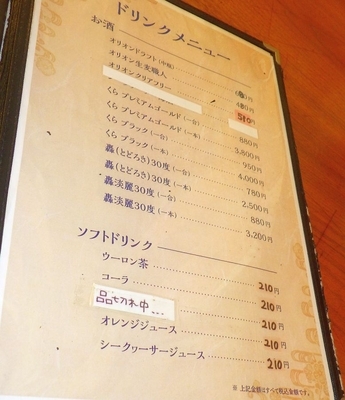 ドリンクメニュー
お酒
オリオンドラフト(中瓶) 円
オリオン生麦職人 480円
オリオンクリアフリー 510円
くら プレミアムゴールド(一合) 880円
くら プレミアムゴールド(一本) 3,800円
くら ブラック(一合) 950円
くら ブラック(一本) 4,000円
轟(とどろき)30度(一合) 780円
轟(とどろき)30度(一本) 2,500円
轟淡麗30度(一合) 880円
轟淡麗30度(一本) 3,200円
ソフトドリンク
ウーロン茶 210円
コーラ 210円
品切れ中... 210円
オレンジジュース 210円
シークヮーサージュース 210円
※ 上記金額はすべて税込金額です。